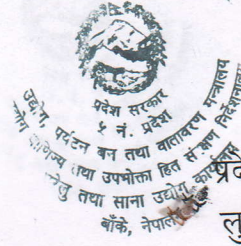 प्रदेश सरकार
५ नं. प्रदेश
उद्योग, पर्यटन बन तथा वातावरण मन्त्रालय
वाणिज्य तथा उपभोक्ता हित संरक्षण
घरेलु तथा साना उद्योग कार्यालय
बाँके, नेपाल